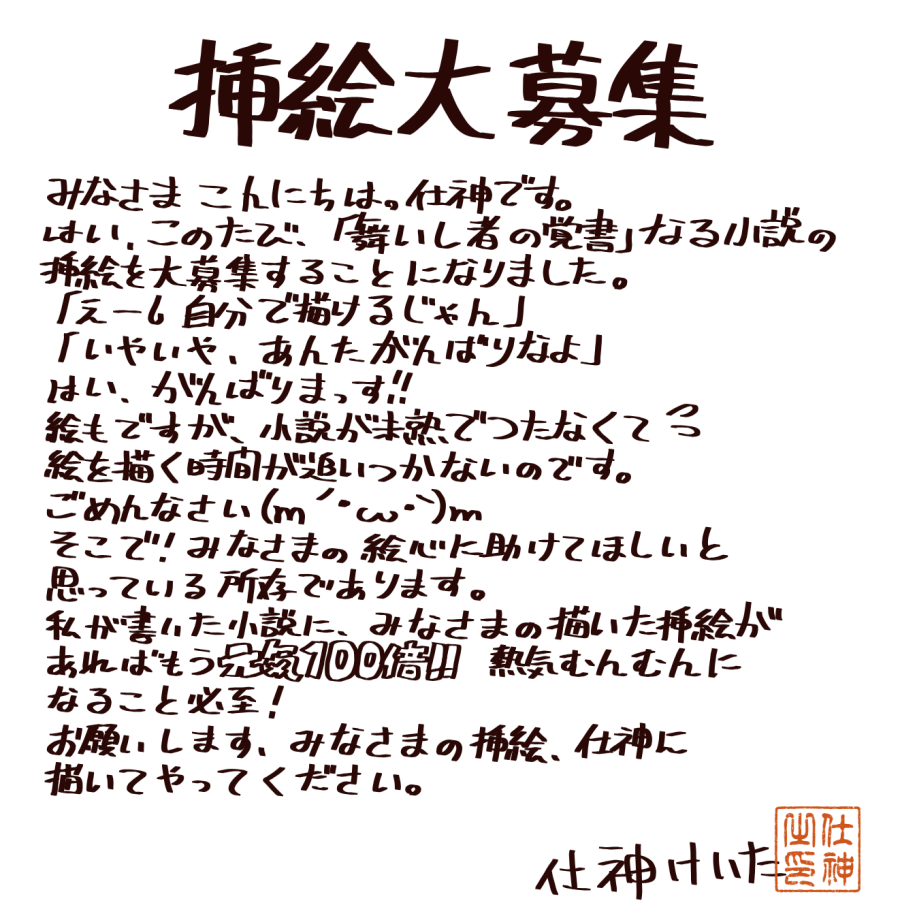 挿絵大募集
みなさま こんにちは。仕神です。
はい、このたび、「舞いし者の覚書」なる小説の
挿絵を大募集することになりました。
「えー、自分で描けるじゃん」
「いやいや、あんたがんばりなよ」
はい、がんばりまっす!!
絵もですが、小説が未熟でつたなくて
絵を描く時間が追いつかないのです。
ごめんなさい(m´・ω・`)m
そこで!みなさまの絵心に助けてほしいと
思っている所存であります。
私が書いた小説に、みなさまの描いた挿絵が
あればもう元気100倍!! 熱気むんむんに
なること必至!
お願いします、みなさまの挿絵、仕神に
描いてやってください。
仕神けいた
仕神
之印